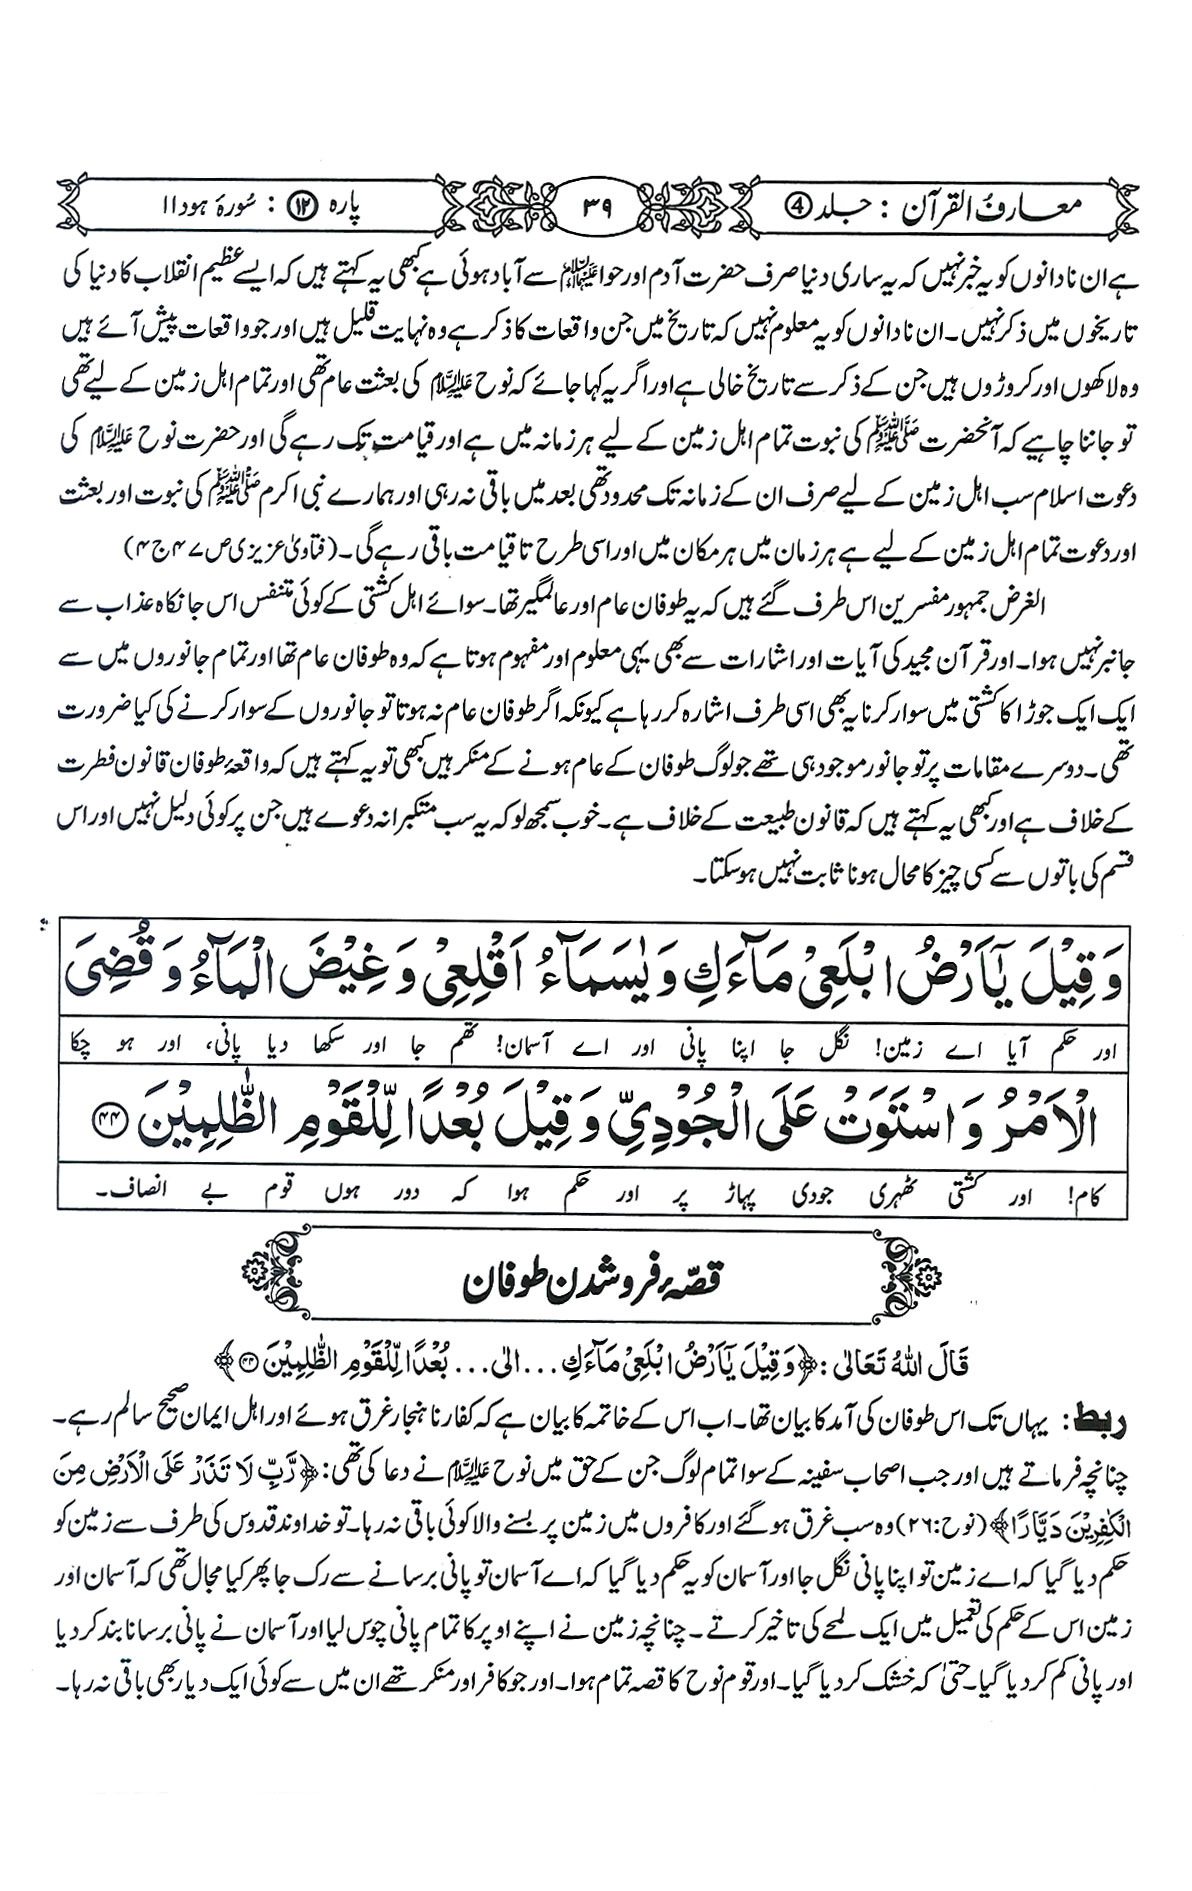 معارفُ القرآن : جلد ④
۳۹
پارہ ⑫ : سُورۂ ہود ۱۱
ہے ان نادانوں کو یہ خبر نہیں کہ یہ ساری دنیا صرف حضرت آدم اور حوا علیہما السلام سے آباد ہوئی ہے کبھی یہ کہتے ہیں کہ ایسے عظیم انقلاب کا دنیا کی
تاریخوں میں ذکر نہیں۔ ان نادانوں کو یہ معلوم نہیں کہ تاریخ میں جن واقعات کا ذکر ہے وہ نہایت قلیل ہیں اور جو واقعات پیش آئے ہیں
وہ لاکھوں اور کروڑوں ہیں جن کے ذکر سے تاریخ خالی ہے اور اگر یہ کہا جائے کہ نوح علیہ السلام کی بعثت عام تھی اور تمام اہل زمین کے لیے تھی
تو جاننا چاہیے کہ آنحضرت ﷺ کی نبوت تمام اہل زمین کے لیے ہر زمانہ میں ہے اور قیامت تک رہے گی اور حضرت نوح علیہ السلام کی
دعوت اسلام سب اہل زمین کے لیے صرف ان کے زمانہ تک محدود تھی بعد میں باقی نہ رہی اور ہمارے نبی اکرم ﷺ کی نبوت اور بعثت
اور دعوت تمام اہل زمین کے لیے ہے ہر زمان میں ہر مکان میں اور اسی طرح تا قیامت باقی رہے گی۔ (فتاویٰ عزیزی ص ۴۷ ج ۴)
الغرض جمہور مفسرین اس طرف گئے ہیں کہ یہ طوفان عام اور عالمگیر تھا۔ سوائے اہل کشتی کے کوئی متنفس اس جانکاہ عذاب سے
جانبر نہیں ہوا۔ اور قرآن مجید کی آیات اور اشارات سے بھی یہی معلوم اور مفہوم ہوتا ہے کہ وہ طوفان عام تھا اور تمام جانوروں میں سے
ایک ایک جوڑا کا کشتی میں سوار کرنا یہ بھی اسی طرف اشارہ کر رہا ہے کیونکہ اگر طوفان عام نہ ہوتا تو جانوروں کے سوار کرنے کی کیا ضرورت
تھی۔ دوسرے مقامات پر تو جانور موجود ہی تھے جو لوگ طوفان کے عام ہونے کے منکر ہیں کبھی تو یہ کہتے ہیں کہ واقعۂ طوفان قانون فطرت
کے خلاف ہے اور کبھی یہ کہتے ہیں کہ قانون طبیعت کے خلاف ہے۔ خوب سمجھ لو کہ یہ سب متکبرانہ دعوے ہیں جن پر کوئی دلیل نہیں اور اس
قسم کی باتوں سے کسی چیز کا محال ہونا ثابت نہیں ہو سکتا۔
وَ قِيْلَ يٰۤاَرْضُ ابْلَعِيْ مَآءَكِ وَ يٰسَمَآءُ اَقْلِعِيْ وَ غِيْضَ الْمَآءُ وَ قُضِيَ
اور حکم آیا اے زمین! نگل جا اپنا پانی اور اے آسمان! تھم جا اور سکھا دیا پانی، اور ہو چکا
الْاَمْرُ وَ اسْتَوَتْ عَلَى الْجُوْدِيِّ وَ قِيْلَ بُعْدًا لِّلْقَوْمِ الظّٰلِمِيْنَ ۴۴
کام! اور کشتی ٹھہری جودی پہاڑ پر اور حکم ہوا کہ دور ہوں قوم بے انصاف۔
قصّہ فرو شدن طوفان
قَالَ اللهُ تَعَالٰی : ﴿وَ قِيْلَ يٰۤاَرْضُ ابْلَعِيْ مَآءَكِ ... الی ... بُعْدًا لِّلْقَوْمِ الظّٰلِمِيْنَ ۴۴﴾
ربط: یہاں تک اس طوفان کی آمد کا بیان تھا۔ اب اس کے خاتمہ کا بیان ہے کہ کفار ناہنجار غرق ہوئے اور اہل ایمان صحیح سالم رہے۔
چنانچہ فرماتے ہیں اور جب اصحاب سفینہ کے سوا تمام لوگ جن کے حق میں نوح علیہ السلام نے دعا کی تھی: ﴿رَّبِّ لَا تَذَرْ عَلَى الْاَرْضِ مِنَ
الْكٰفِرِيْنَ دَيَّارًا﴾ (نوح: ۲۶) وہ سب غرق ہو گئے اور کافروں میں زمین پر بسنے والا کوئی باقی نہ رہا۔ تو خداوند قدوس کی طرف سے زمین کو
حکم دیا گیا کہ اے زمین تو اپنا پانی نگل جا اور آسمان کو یہ حکم دیا گیا کہ اے آسمان تو پانی برسانے سے رک جا پھر کیا مجال تھی کہ آسمان اور
زمین اس کے حکم کی تعمیل میں ایک لمحے کی تاخیر کرتے۔ چنانچہ زمین نے اپنے اوپر کا تمام پانی چوس لیا اور آسمان نے پانی برسانا بند کر دیا
اور پانی کم کر دیا گیا۔ حتیٰ کہ خشک کر دیا گیا۔ اور قوم نوح کا قصہ تمام ہوا۔ اور جو کافر اور منکر تھے ان میں سے کوئی ایک دیار بھی باقی نہ رہا۔